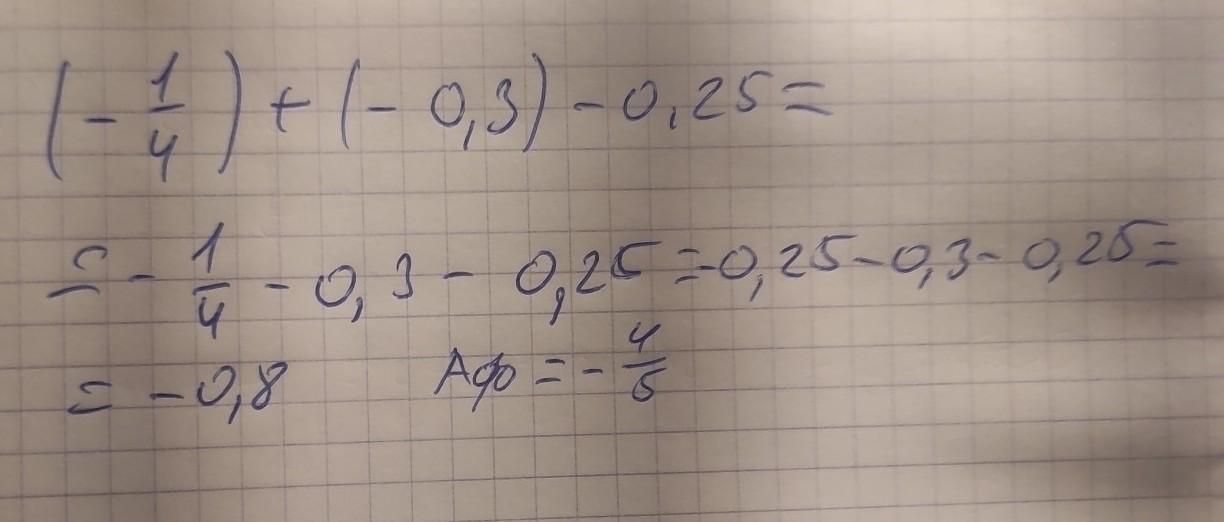 (- 1/4) + (- 0,3) - 0,25 =
= - 1/4 - 0,3 - 0,25 = -0,25 - 0,3 - 0,25 =
= -0,8 Афо = - 4/5